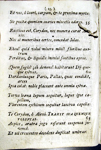 Et vos, ô lauri, carpam, & te proxima myrte:
Sic positæ quoniam suaves miscetis odores.
Rusticus es, Corydon, nec munera curat Alexis:
Nec, si muneribus certes, concedat Iolas.
Eheu! quid volui misero mihi? floribus austrum
Perditus, & liquidis immisi fontibus apros.
Quem fugis, ah demens! habitarunt Dî quoque
Dardaniusque Paris. Pallas, quas condidit arces,
Ipsa colat
Torva leæna lupum sequitur, lupus ipse capellam:
Florentem cytisum sequitur lasciva capella:
Te Corydon, ô Alexi. TRAHIT SUA QUEMQUE
Aspice, aratra jugo referunt suspensa juvenci,
Et sol crescentes decedens duplicat umbras